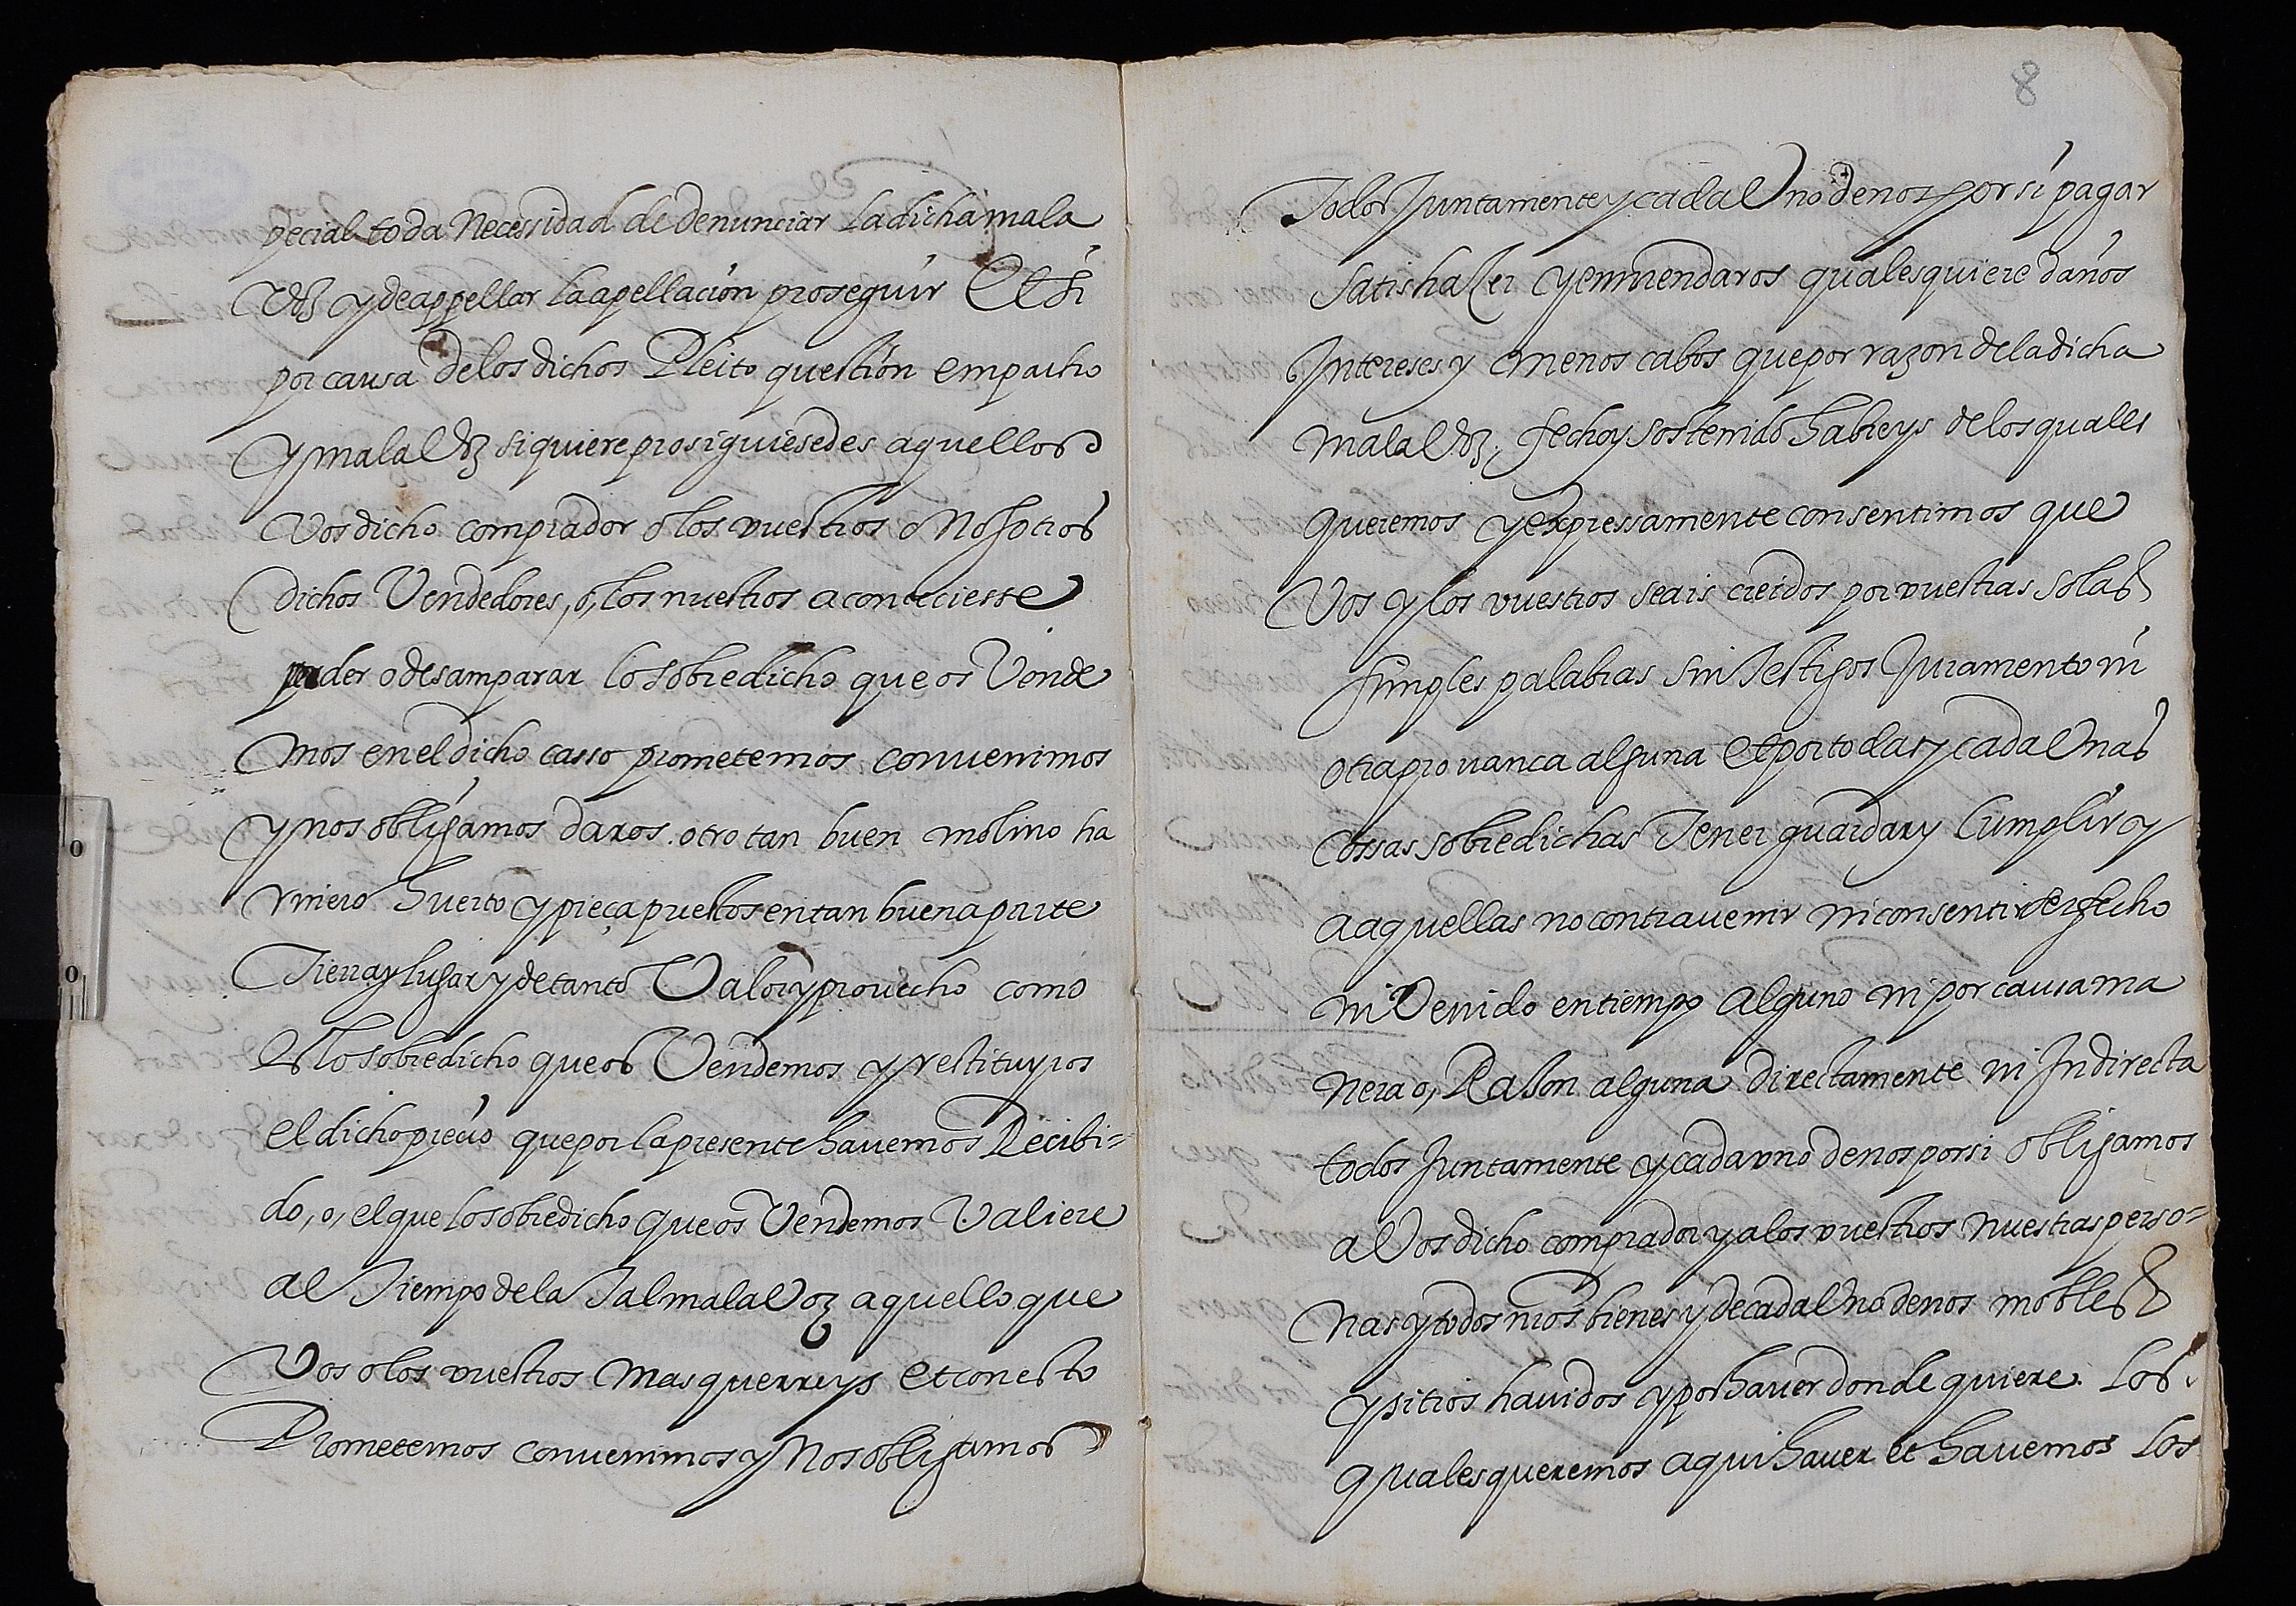 pecial toda Necessidad de denunciar la dicha mala
Voz y de appellar la apellacion proseguir Et si
por causa de los dichos Pleito question empacho
y mala Voz siquiere prosiguiesedes aquellos
Vos dicho comprador o los vuestros o Nosotros
dichos Vendedores, o, los nuestros aconteciesse
perder o desamparar lo sobredicho que os Vende
mos en el dicho casso prometemos convenimos
y nos obligamos daros otro tan buen molino ha
rinero huerto y pieça puestos en tan buena parte
Tierra y lugar y de tanto Valor y provecho como
es lo sobredicho que os Vendemos y restituyros
el dicho precio que por la presente havemos Recibi=
do, o, el que lo sobredicho que os Vendemos Valiere
al Tiempo de la Tal mala Voz aquello que
Vos o los vuestros mas querreys et con esto
Prometemos convenimos y Nos obligamos
8
Todos Juntamente y cada Uno de nos por si pagar
satishaçer y emmendaros qualesquiere daños
Intereses y menos cabos que por razon de la dicha
mala Voz, fecho y sostenido habreys de los quales
queremos y expressamente consentimos que
Vos y los vuestros seais creidos por vuestras solas
simples palabras sin Testigos Juramento ni
otra provança alguna et por todas y cada Unas
cossas sobredichas Tener guardar y Cumplir y
a aquellas no contravenir ni consentir ser fecho
ni Venido en tiempo alguno ni por causa ma
nera o, Rason alguna directamente ni Indirecta
todos Juntamente y cada uno de nos por si obligamos
a Vos dicho comprador y a los vuestros nuestras perso=
nas y todos nros bienes y de cada Uno de nos mobles
y sitios havidos y por haver donde quiere. Los
quales queremos aqui haver et havemos los